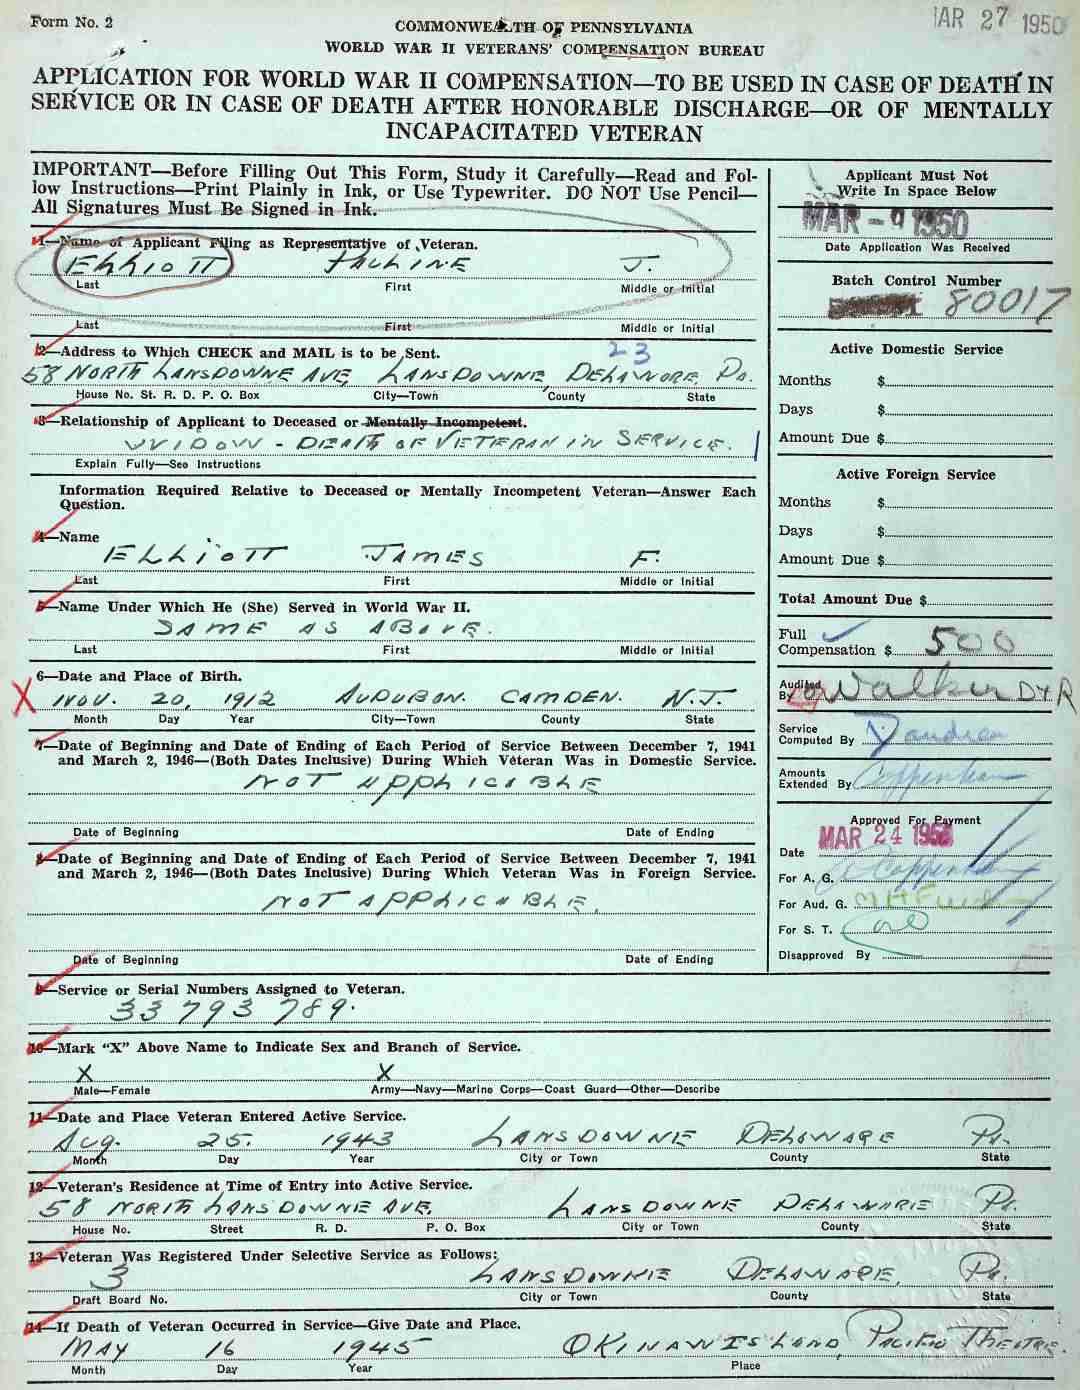 Form No. 2
MAR 27 1950
COMMONWEALTH OF PENNSYLVANIA
WORLD WAR II VETERANS' COMPENSATION BUREAU
APPLICATION FOR WORLD WAR II COMPENSATION—TO BE USED IN CASE OF DEATH IN
SERVICE OR IN CASE OF DEATH AFTER HONORABLE DISCHARGE—OR OF MENTALLY
INCAPACITATED VETERAN
IMPORTANT—Before Filling Out This Form, Study it Carefully—Read and Fol-
low Instructions—Print Plainly in Ink, or Use Typewriter. DO NOT Use Pencil—
All Signatures Must Be Signed in Ink.
1—Name of Applicant Filing as Representative of Veteran.
ELLIOTT PAULINE J.
Last First Middle or Initial
Last First Middle or Initial
2—Address to Which CHECK and MAIL is to be Sent.
23
58 NORTH LANSDOWNE AVE, LANSDOWNE, DELAWARE, Pa.
House No. St. R. D. P. O. Box City—Town County State
3—Relationship of Applicant to Deceased or Mentally Incompetent.
WIDOW - DEATH OF VETERAN IN SERVICE. 1
Explain Fully—See Instructions
Information Required Relative to Deceased or Mentally Incompetent Veteran—Answer Each
Question.
4—Name
ELLIOTT JAMES F.
Last First Middle or Initial
5—Name Under Which He (She) Served in World War II.
SAME AS ABOVE.
Last First Middle or Initial
6—Date and Place of Birth.
X NOV. 20, 1912 AUDUBON. CAMDEN. N.J.
Month Day Year City—Town County State
7—Date of Beginning and Date of Ending of Each Period of Service Between December 7, 1941
and March 2, 1946—(Both Dates Inclusive) During Which Veteran Was in Domestic Service.
NOT APPLICABLE
Date of Beginning Date of Ending
8—Date of Beginning and Date of Ending of Each Period of Service Between December 7, 1941
and March 2, 1946—(Both Dates Inclusive) During Which Veteran Was in Foreign Service.
NOT APPLICABLE.
Date of Beginning Date of Ending
Applicant Must Not
Write In Space Below
MAR -9 1950
Date Application Was Received
Batch Control Number
80017
Active Domestic Service
Months $
Days $
Amount Due $
Active Foreign Service
Months $
Days $
Amount Due $
Total Amount Due $
Full
Compensation $ 500
Audited
By Walker D4R
Service
Computed By
Amounts
Extended By Coppenham
Approved For Payment
Date MAR 24 1950
For A. G. Coppenham
For Aud. G.
For S. T.
Disapproved By
9—Service or Serial Numbers Assigned to Veteran.
33 793 789.
10—Mark "X" Above Name to Indicate Sex and Branch of Service.
X X
Male—Female Army—Navy—Marine Corps—Coast Guard—Other—Describe
11—Date and Place Veteran Entered Active Service.
Aug. 25. 1943 LANSDOWNE DELAWARE Pa.
Month Day Year City or Town County State
12—Veteran's Residence at Time of Entry into Active Service.
58 NORTH LANSDOWNE AVE. LANSDOWNE DELAWARE Pa.
House No. Street R. D. P. O. Box City or Town County State
13—Veteran Was Registered Under Selective Service as Follows:
3 LANSDOWNE DELAWARE, Pa.
Draft Board No. City or Town County State
14—If Death of Veteran Occurred in Service—Give Date and Place.
MAY 16 1945 OKINAWA ISLAND, PACIFIC THEATRE.
Month Day Year Place